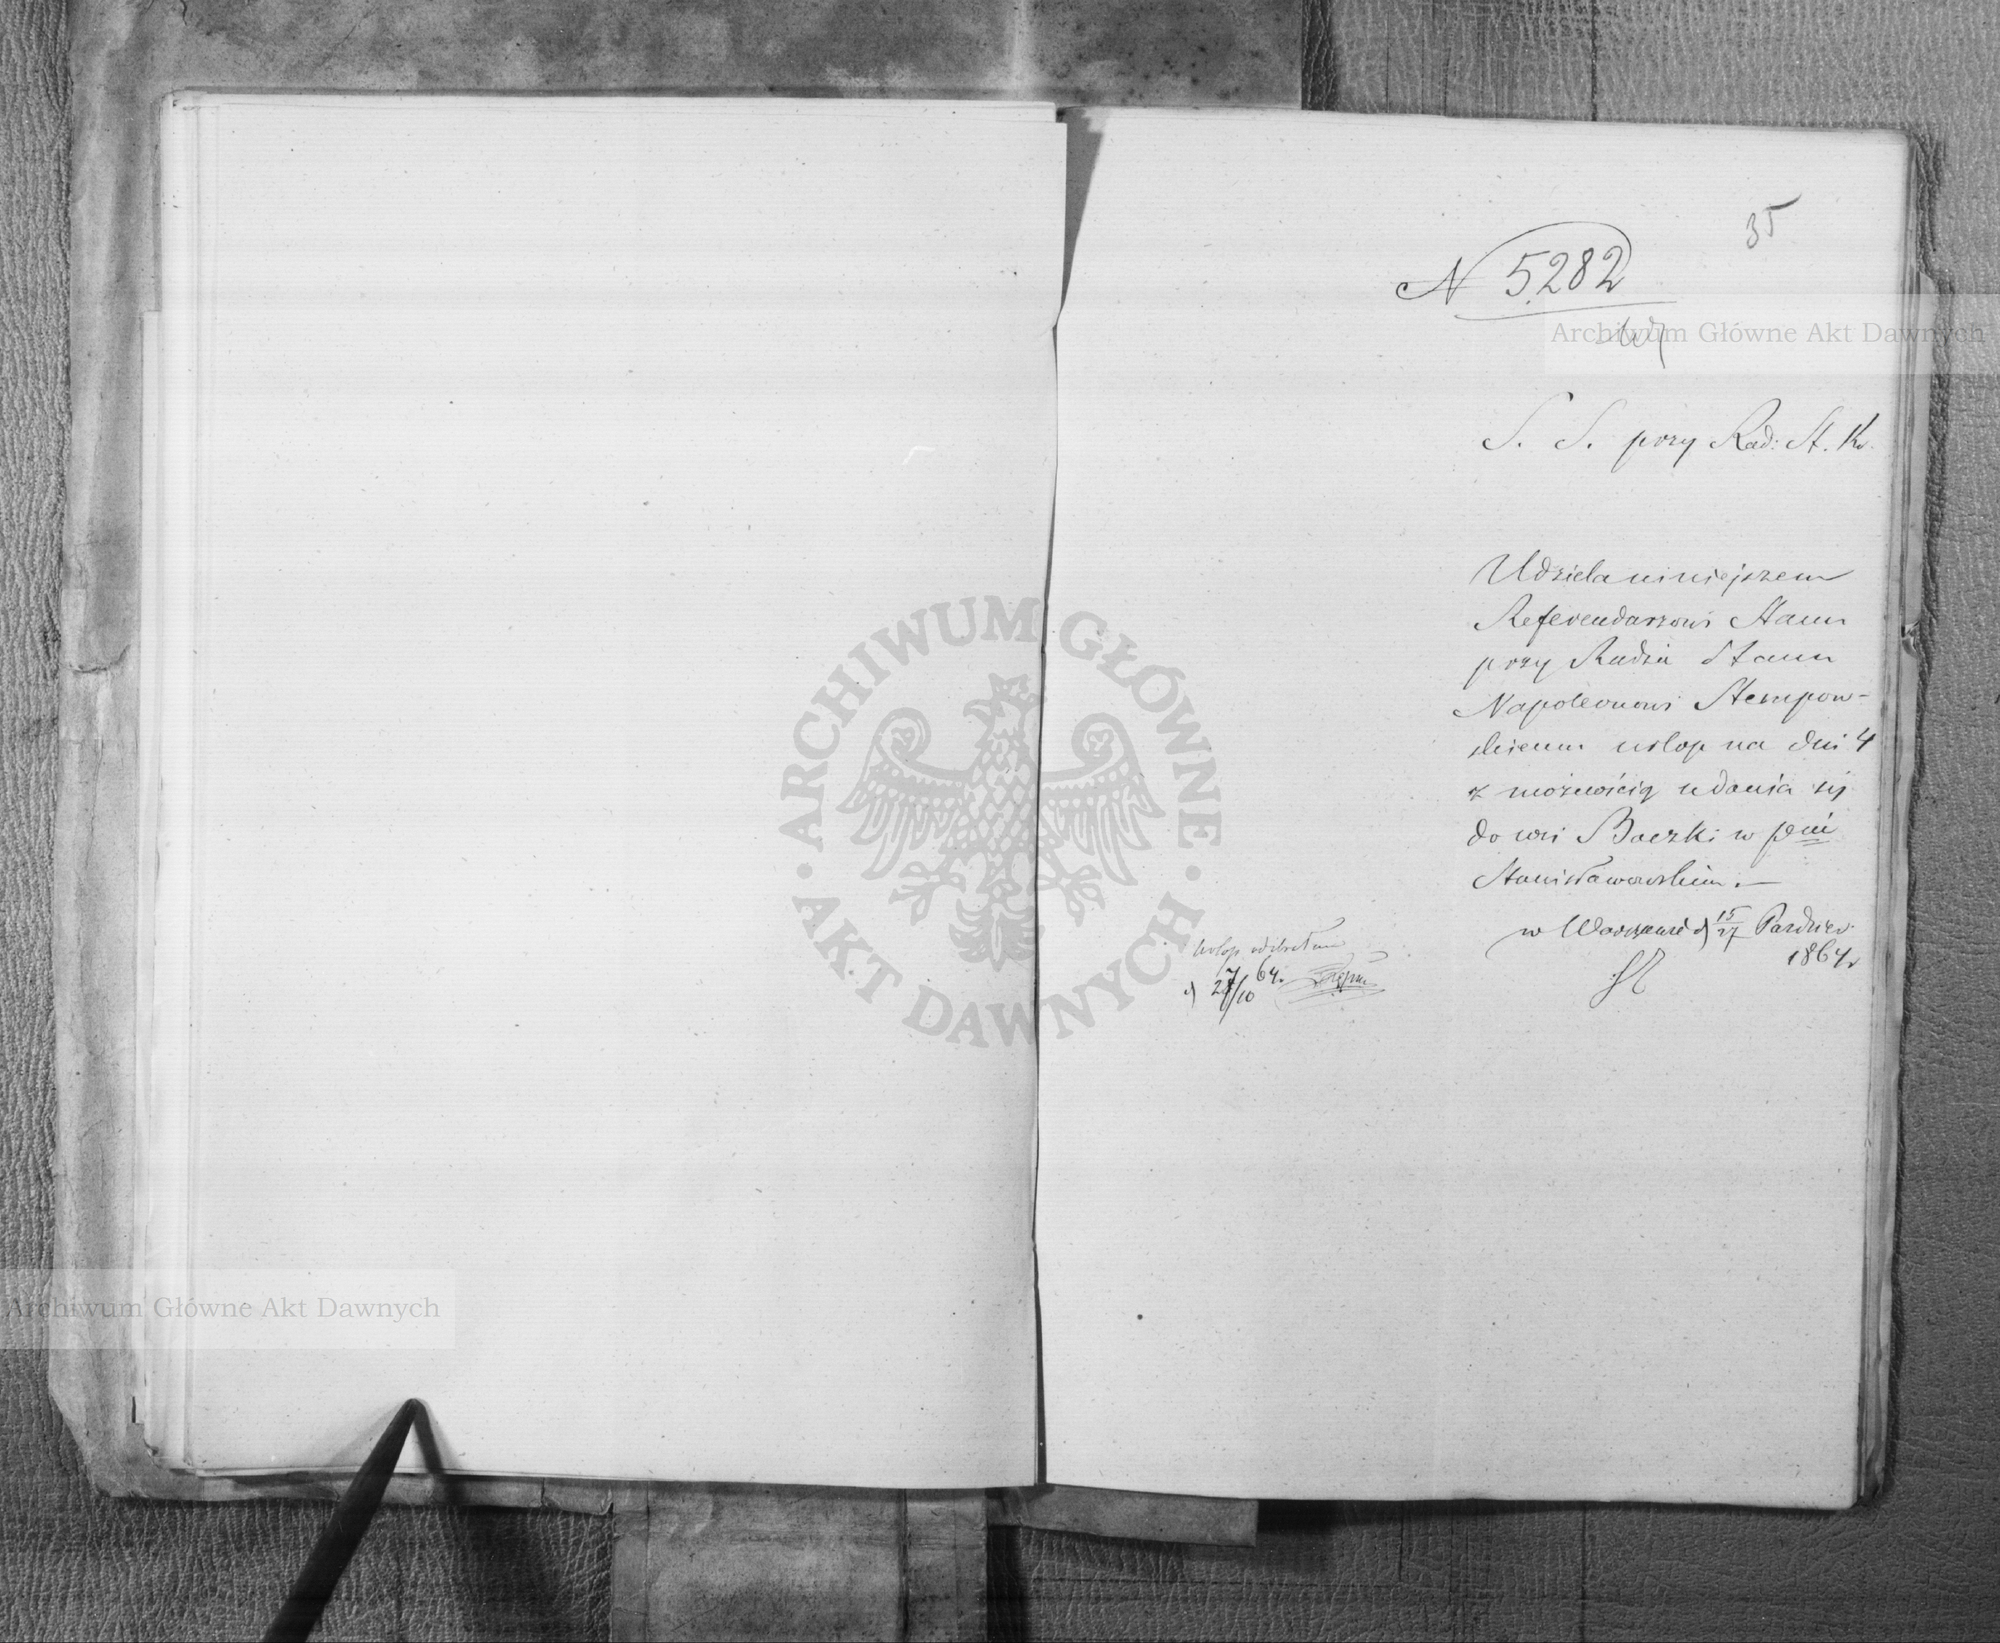 35
N 5282
Archiwum Główne Akt Dawnych
S. S. przy Rad: St. Kr.
Udziela niniejszem
Referendarzowi Stanu
przy Radzie Stanu
Napoleonowi Stempow-
skiemu urlop na dni 4
z możnością udania się
do wsi Baczki w pcie
Stanisławowskim. —
w Warszawie d 15/27 Paździer
1864 r
Urlop odebrałem
d 27/10 64.
ARCHIWUM GŁÓWNE
AKT DAWNYCH
Archiwum Główne Akt Dawnych